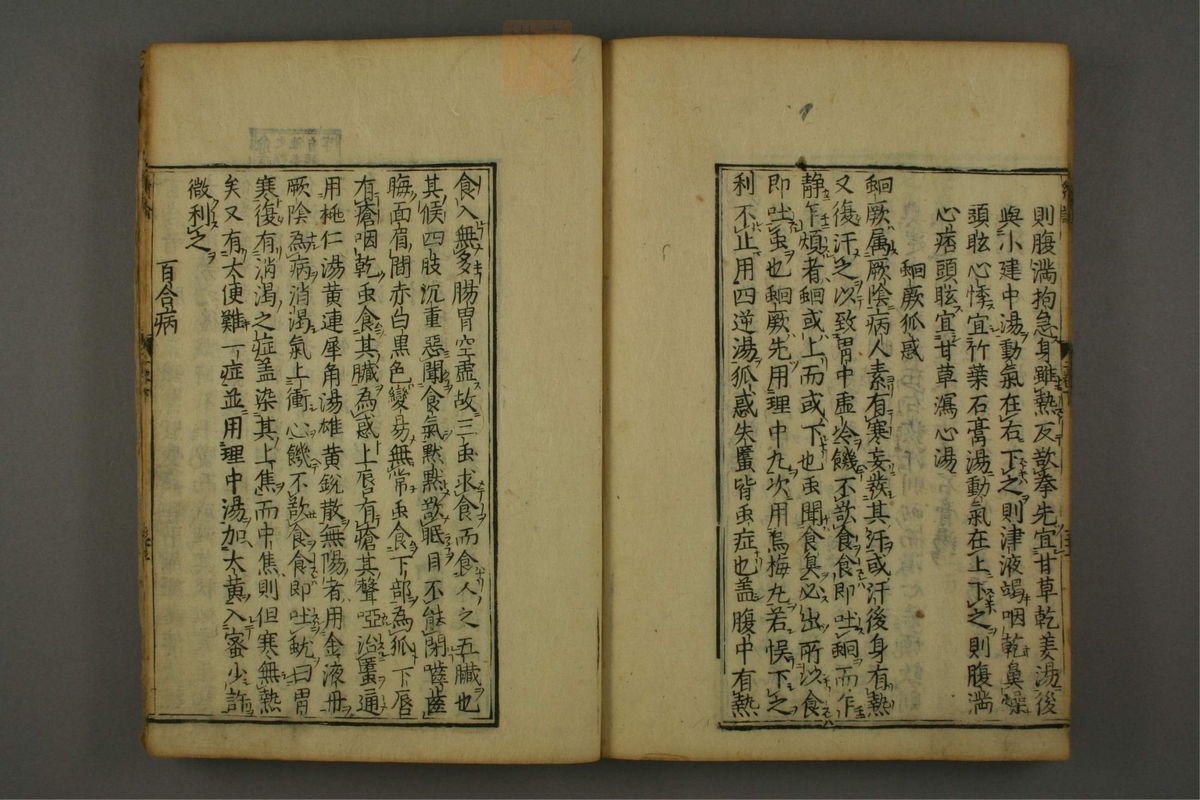 則腹満拘急身雖熱反欲拳先宜甘草乾姜湯後
與小建中湯動氣在右下之則津液竭咽乾鼻燥
頭眩心悸宜竹葉石膏湯動氣在上下之則腹満
心痞頭眩宜甘草瀉心湯
蛔厥狐惑
蛔厥属厥陰病人素有寒妄發其汗或汗後身有熱
又復汗之以致胃中虚冷饑不欲食食即吐蛔而乍
静乍煩者蛔或上而或下也虫聞食臭必出所以食
即吐虫也蛔厥先用理中丸次用烏梅丸若悞下之
利不止用四逆湯狐惑失匿皆虫症也盖腹中有熱
食入無多腸胃空虚故三虫求食而食人之五臓也
其候四肢沉重惡聞食氣默默欲眠目不能閉噬齒
晦面眉間赤白黒色變易無常虫食下部為狐下唇
有瘡咽乾虫食其臓為惑上唇有瘡其聲啞治匿通
用桃仁湯黄連犀角湯雄黄鋭散無陽者用金液丹
厥陰為病消渇氣上衝心饑不欲食食即吐蚘曰胃
寒復有消渇之症盖染其上焦而中焦則但寒無熱
矣又有大便難一症並用理中湯加大黄入蜜少許
微利之
百合病